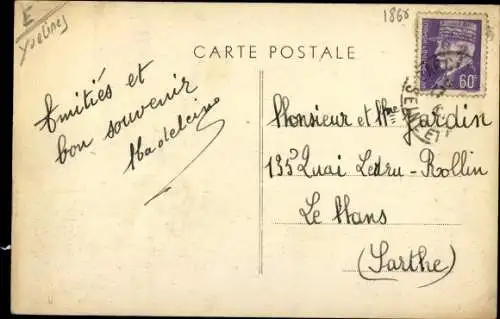 E
Yvelines
1860
CARTE POSTALE
60c
SEINE ET
Amitiés et
bon souvenir
Madeleine
Monsieur et Mme Jardin
135 Quai Ledru-Rollin
Le Mans
(Sarthe)